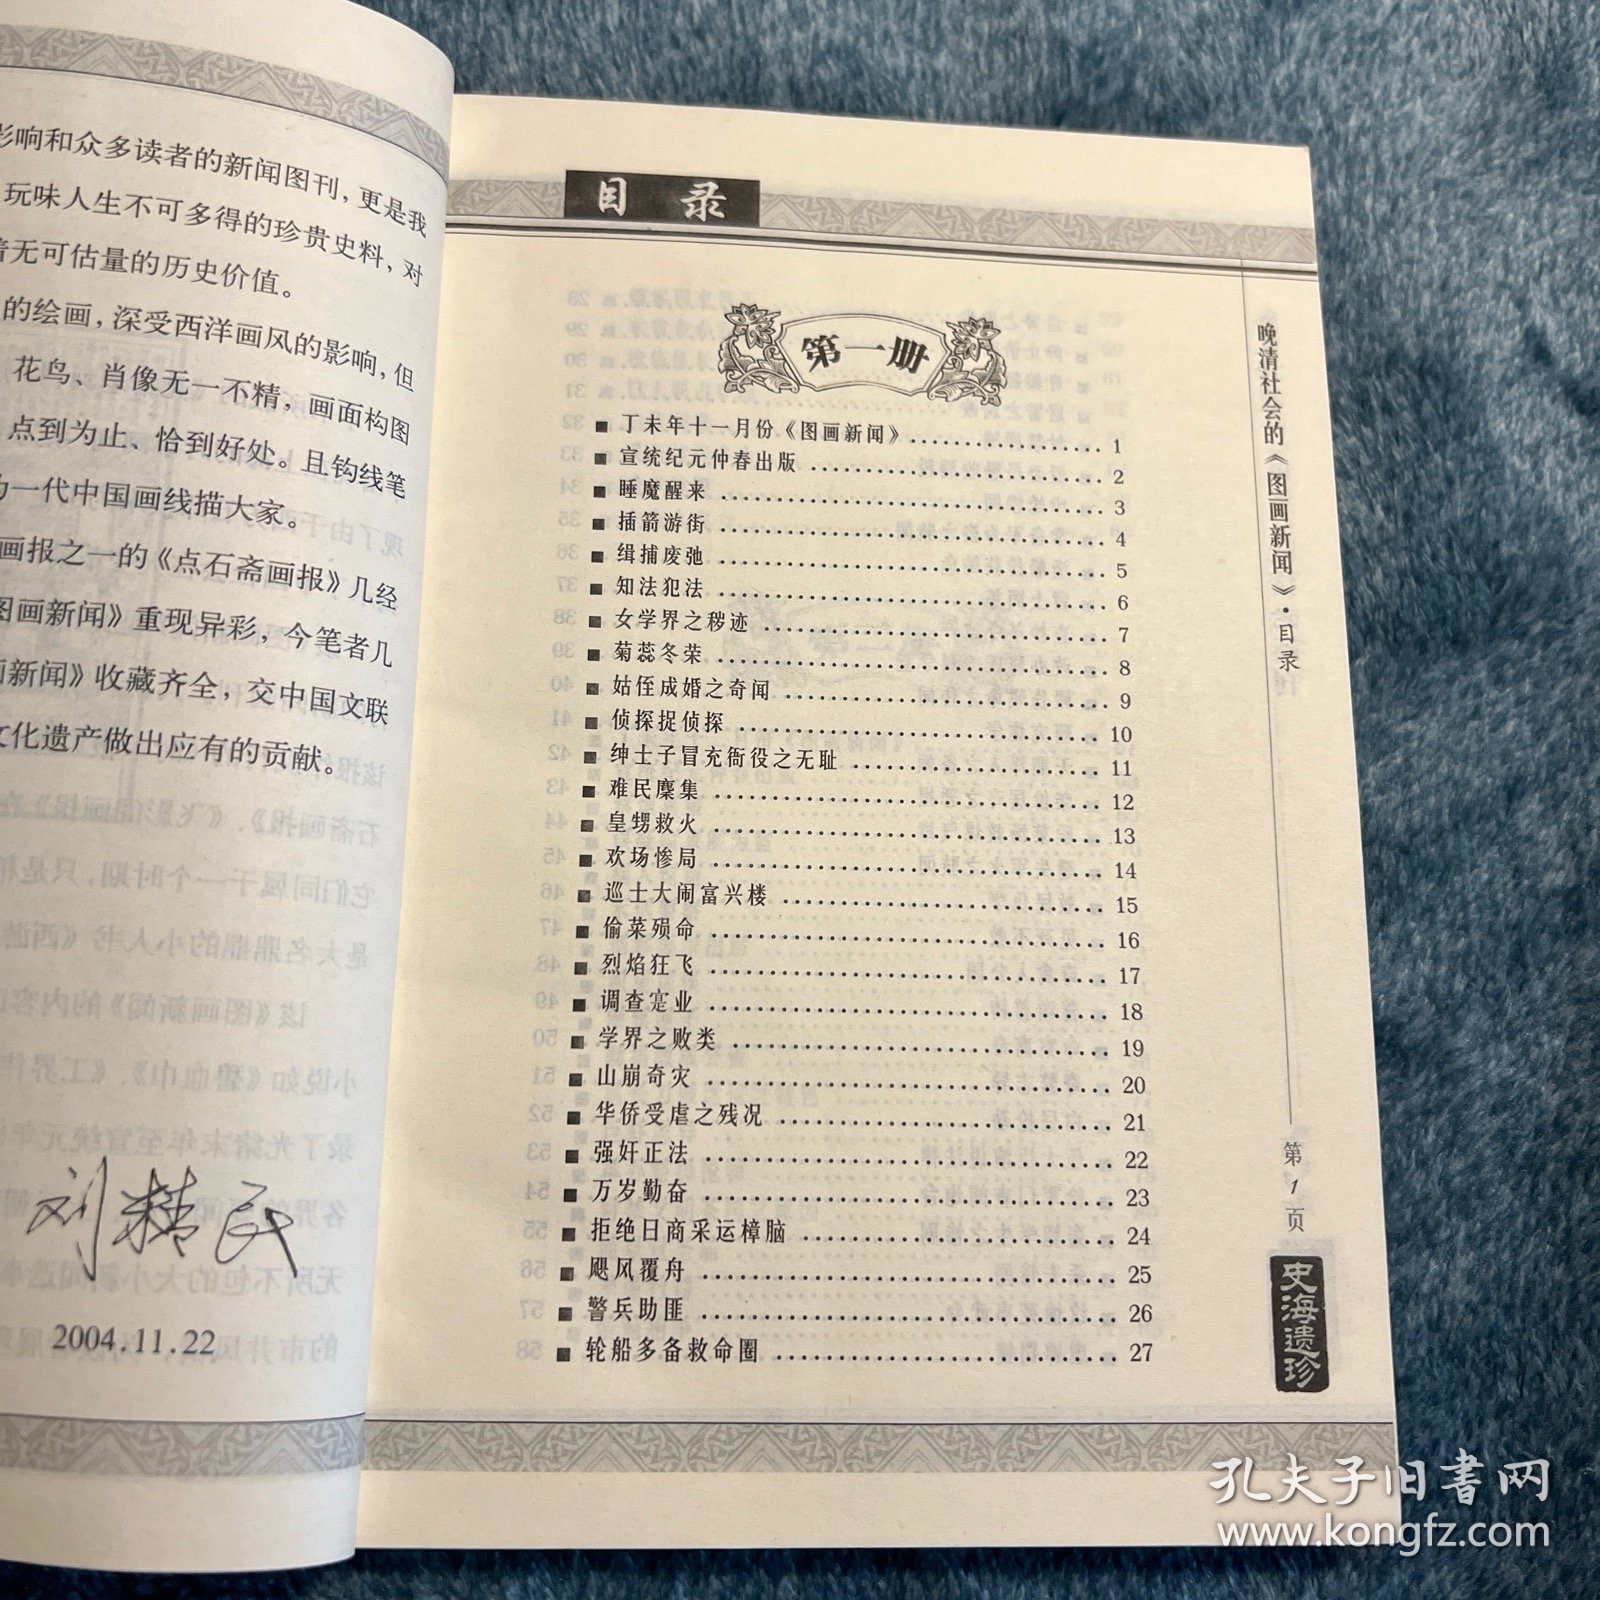 影响和众多读者的新闻图刊，更是我
玩味人生不可多得的珍贵史料，对
着无可估量的历史价值。
的绘画，深受西洋画风的影响，但
花鸟、肖像无一不精，画面构图
点到为止、恰到好处。且钩线笔
一代中国画线描大家。
画报之一的《点石斋画报》几经
图画新闻》重现异彩，今笔者几
画新闻》收藏齐全，交中国文联
文化遗产做出应有的贡献。
刘精民
2004.11.22
目录
第一册
■ 丁未年十一月份《图画新闻》 1
■ 宣统纪元仲春出版 2
■ 睡魔醒来 3
■ 插箭游街 4
■ 缉捕废弛 5
■ 知法犯法 6
■ 女学界之秽迹 7
■ 菊蕊冬荣 8
■ 姑侄成婚之奇闻 9
■ 侦探捉侦探 10
■ 绅士子冒充衙役之无耻 11
■ 难民麇集 12
■ 皇甥救火 13
■ 欢场惨局 14
■ 巡士大闹富兴楼 15
■ 偷菜殒命 16
■ 烈焰狂飞 17
■ 调查寔业 18
■ 学界之败类 19
■ 山崩奇灾 20
■ 华侨受虐之残况 21
■ 强奸正法 22
■ 万岁勤奋 23
■ 拒绝日商采运樟脑 24
■ 飓风覆舟 25
■ 警兵助匪 26
■ 轮船多备救命圈 27
晚清社会的《图画新闻》·目录
第1页
史海遗珍
孔夫子旧书网
www.kongfz.com